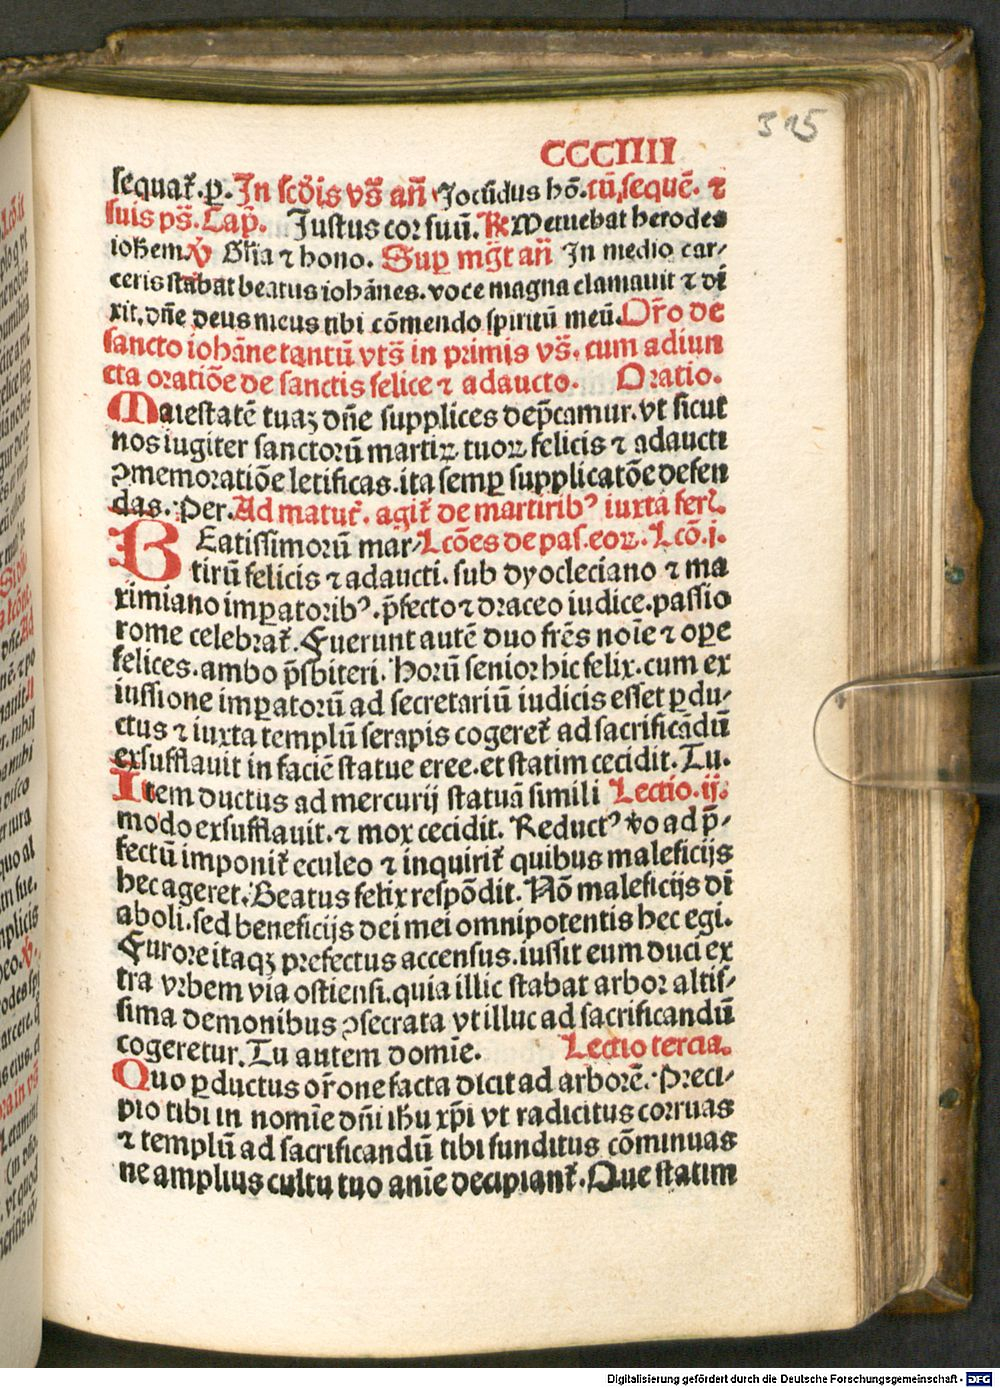 315
CCCIIII
sequat᷑.ꝑ. In scd̄is vs̄ an̄ Jocūdus hō. tū, sequē. ⁊
suis ps̄. Cap̄. Justus cor suū. ℟ Metuebat herodes
iohēm ℣ Gl̄ia ⁊ hono. Sup mḡt an̄ In medio car⸗
ceris stabat beatus iohānes. voce magna clamauit ⁊ di
xit. dn̄e deus meus tibi cōmendo spiritū meū. Or̄o de
sancto iohāne tantū vts̄ in primis vs̄. cum adiun
cta oratiōe de sanctis felice ⁊ adaucto. Oratio.
Maiestatē tuaꝫ dn̄e supplices dep̄camur. vt sicut
nos iugiter sanctorū martiꝝ tuoꝝ felicis ⁊ adaucti
ↄmemoratiōe letificas. ita semꝑ supplicatōe defen
das. Per. Ad matut᷑. agit᷑ de martirib⁹ iuxta ferl̄.
BEatissimorū mar⸗ Lcōes de pas. eoꝝ. Lcō. j.
tirū felicis ⁊ adaucti. sub dyocleciano ⁊ ma
ximiano imꝑatorib⁹. p̄fecto ⁊ draceo iudice. passio
rome celebrat᷑. Fuerunt autē duo frēs noīe ⁊ oꝑe
felices. ambo p̄sbiteri. Horū senior hic felix. cum ex
iussione imꝑatorū ad secretariū iudicis esset ꝑdu⸗
ctus ⁊ iuxta templū serapis cogeret᷑ ad sacrificādū
exsufflauit in faciē statue eree. et statim cecidit. Tu.
Item ductus ad mercurij statuā simili Lectio. ij.
modo exsufflauit. ⁊ mox cecidit. Reduct⁹ v̄o ad p̄⸗
fectū imponit᷑ eculeo ⁊ inquirit᷑ quibus maleficijs
hec ageret. Beatus felix respōdit. Nō maleficijs di
aboli. sed beneficijs dei mei omnipotentis hec egi.
Furore itaqꝫ prefectus accensus. iussit eum duci ex
tra vrbem via ostiensi. quia illic stabat arbor altis⸗
sima demonibus ↄsecrata vt illuc ad sacrificandū
cogeretur. Tu autem domīe. Lectio tercia.
Quo ꝑductus or̄one facta dicit ad arborē. Preci⸗
pio tibi in nomīe dn̄i ihu xp̄i vt radicitus corruas
⁊ templū ad sacrificandū tibi funditus cōminuas
ne amplius cultu tuo anīe decipiant᷑. Que statim
Digitalisierung gefördert durch die Deutsche Forschungsgemeinschaft - DFG